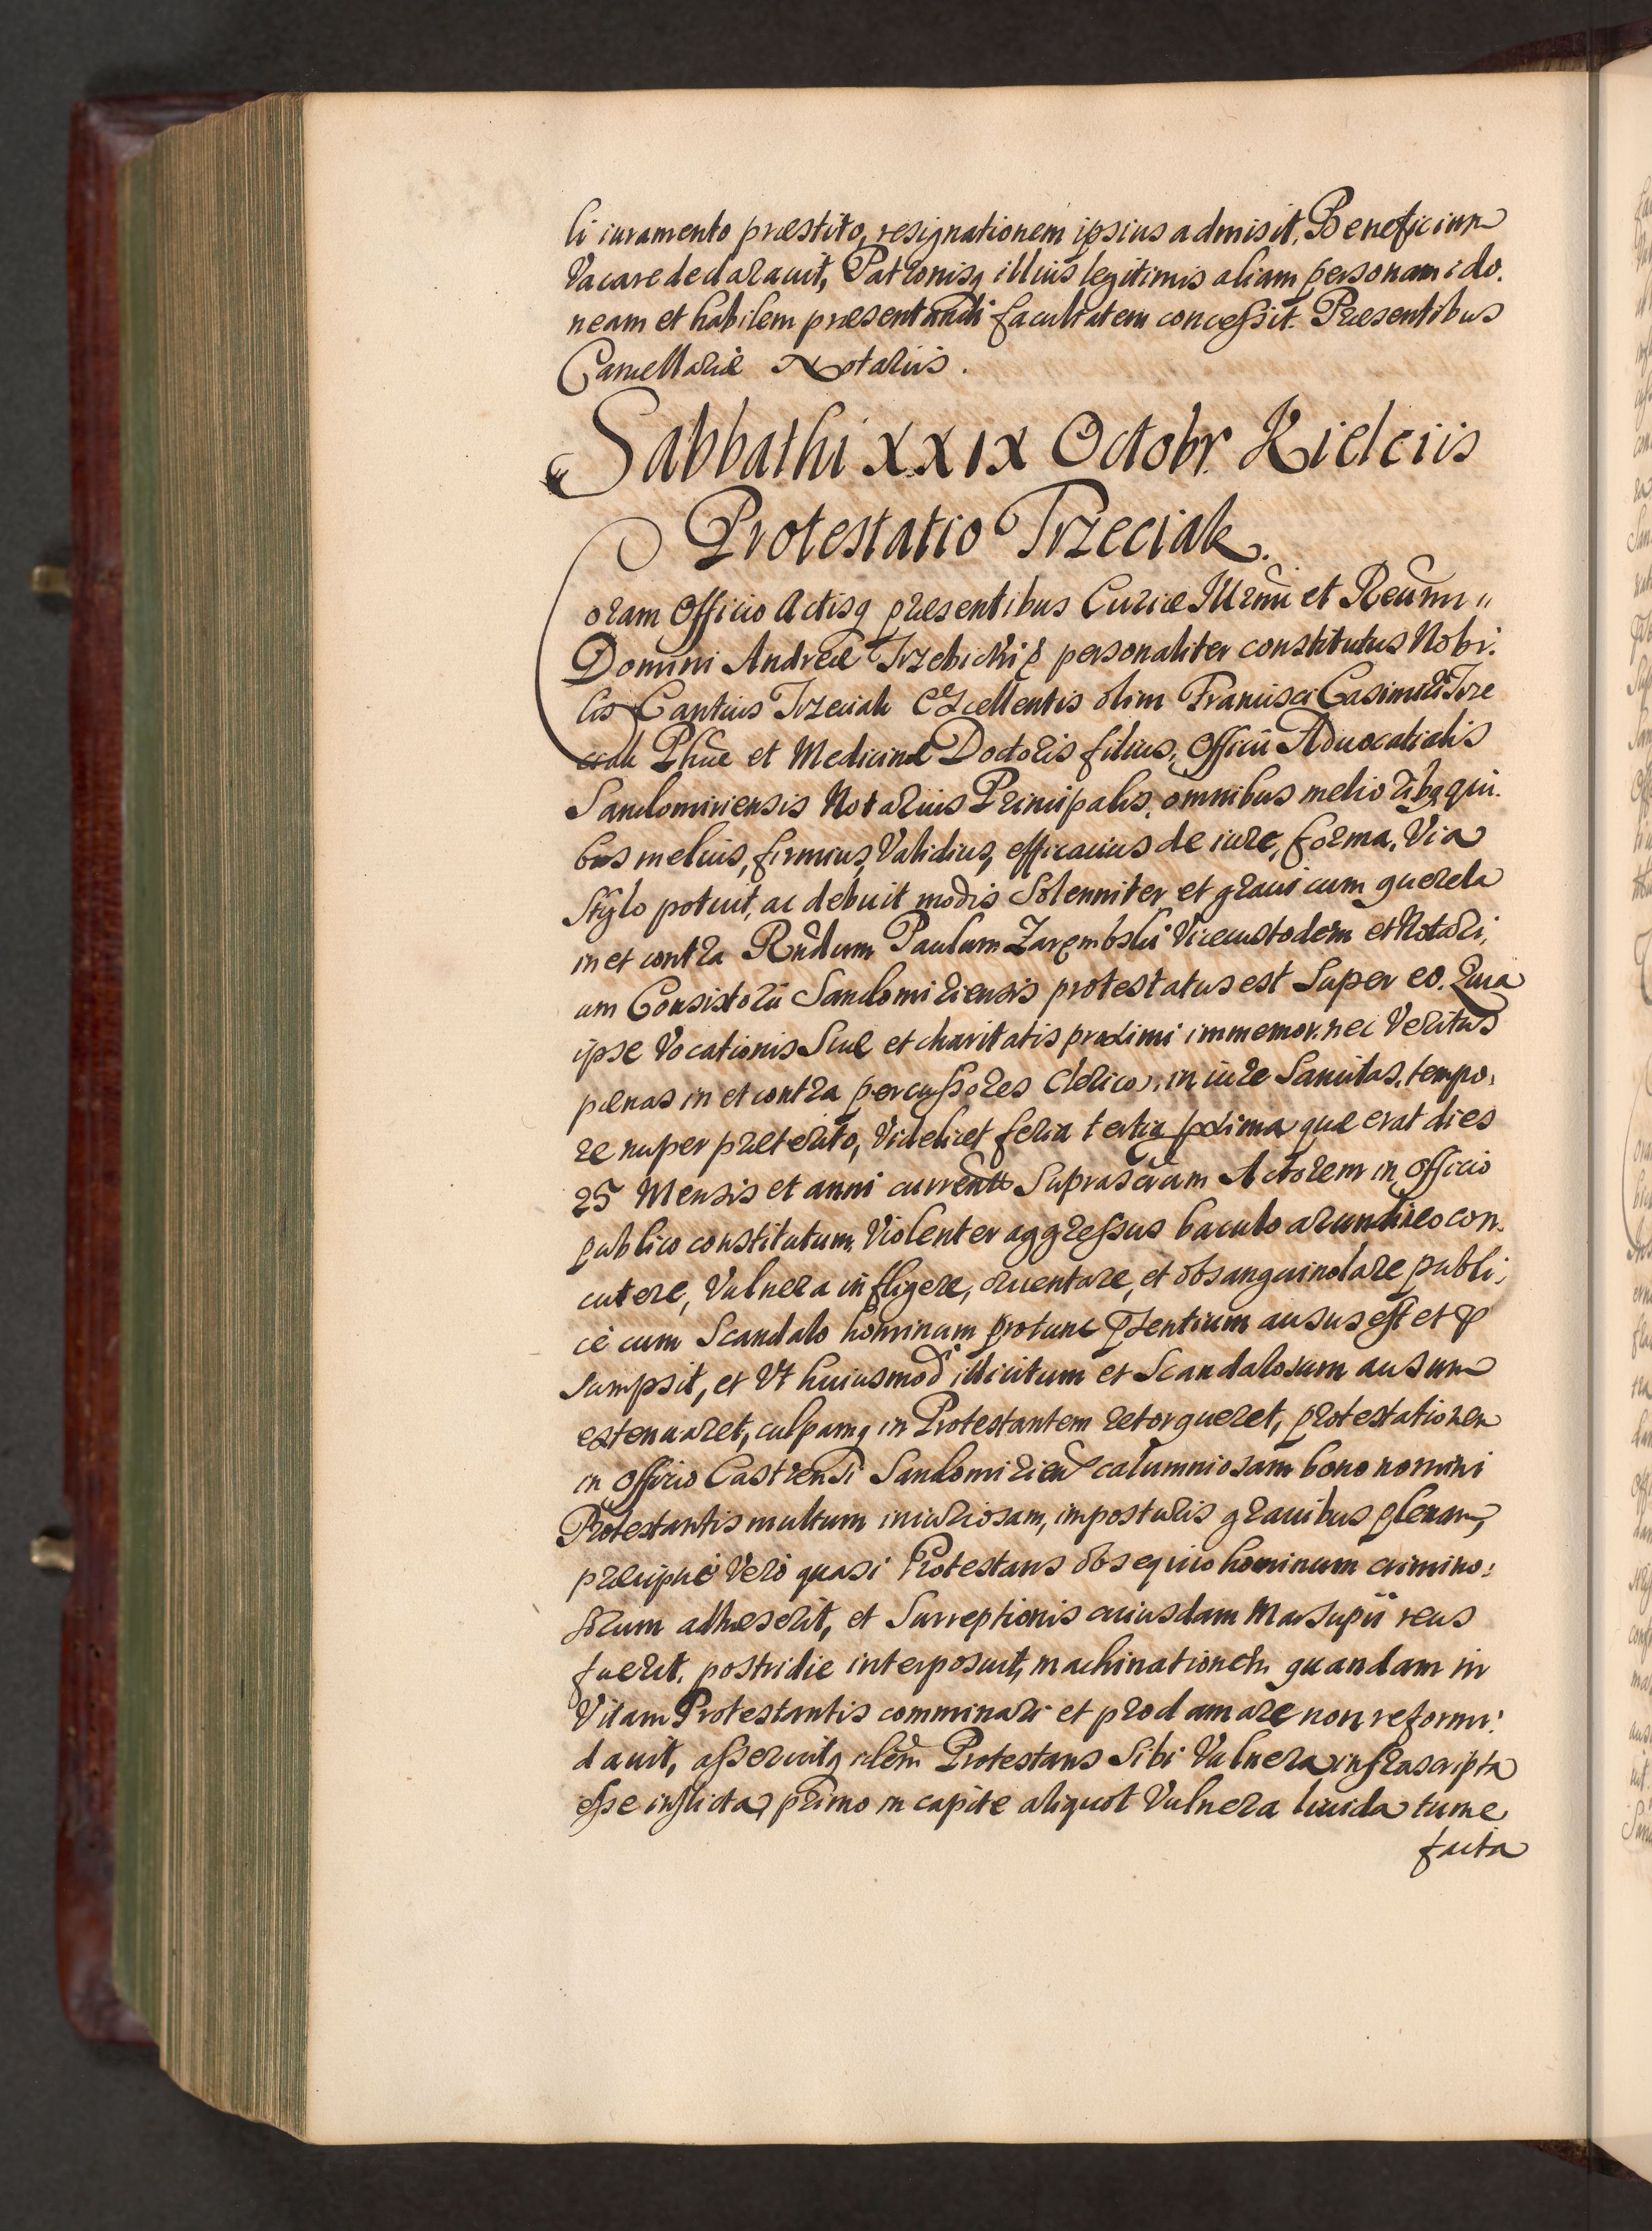 li iuramento præstito, resignationem ipsius admisit, Beneficium
Vacare declarauit, Patronisq illius legitimis aliam personam ido.
neam et habilem præsentandi facultatem concessit. Præsentibus
Cancellariæ Notariis.
Sabbathi XXIX Octobr. Kielciis
Protestatio Trzeciak.
Coram Officio Actisq præsentibus Curiæ Illrmi et Reumi
Domini Andreæ Trzebicki personaliter constitutus Nobi:
lis Cantius Trzeciak Excellentis olim Francisci Casimiri Trze
ciak Phiæ et Medicinæ Doctoris filius, Officii Aduocatialis
Sandomiriensis Notarius Principalis, omnibus melioribq qui.
bus melius, firmius, Validius, efficacius de iure, forma, Via
Stylo potuit, ac debuit modis Solenniter et graui cum querela
in et contra Rndum Paulum Zarembski Vicecustodem et Notari,
um Consistorii Sandomiriensis protestatus est Super eo. Quia
ipse Vocationis Suæ et charitatis proximi immemor, nec Veritus
pænas in et contra percussores Clerico, in iure Sancitas, tempo,
re nuper præterito, Videlicet feria tertia pxima quæ erat dies
25 Mensis et anni currentt Suprascrum Actorem in Officio
publico constitutum, Violenter aggressus baculo arundineo con.
cutere, Vulnera infligere, cruentare, et obsanguinolare publi;
cè cum Scandalo hominum protunc pzentium ausus est et p
sumpsit, et Vt huiusmodi illicitum et Scandalosum ausum
extenuaret, culpamq in Protestantem retorqueret, protestationem
in Officio Castrensi Sandomirien calumniosam bono nomini
Protestantis multum iniuriosam, imposturis grauibus plenam,
præcipuè Verò quasi Protestans obsequio hominum crimino:
sorum adhæserit, et Surreptionis cuiusdam Marsupii reus
fuerit, postridie interposuit, machinationem quandam in
Vitam Protestantis comminari et proclamare non reformi:
dauit, asseruitq idem Protestans Sibi Vulnera infrascripta
esse inflicta, primo in capite aliquot Vulnera liuida tume
facta